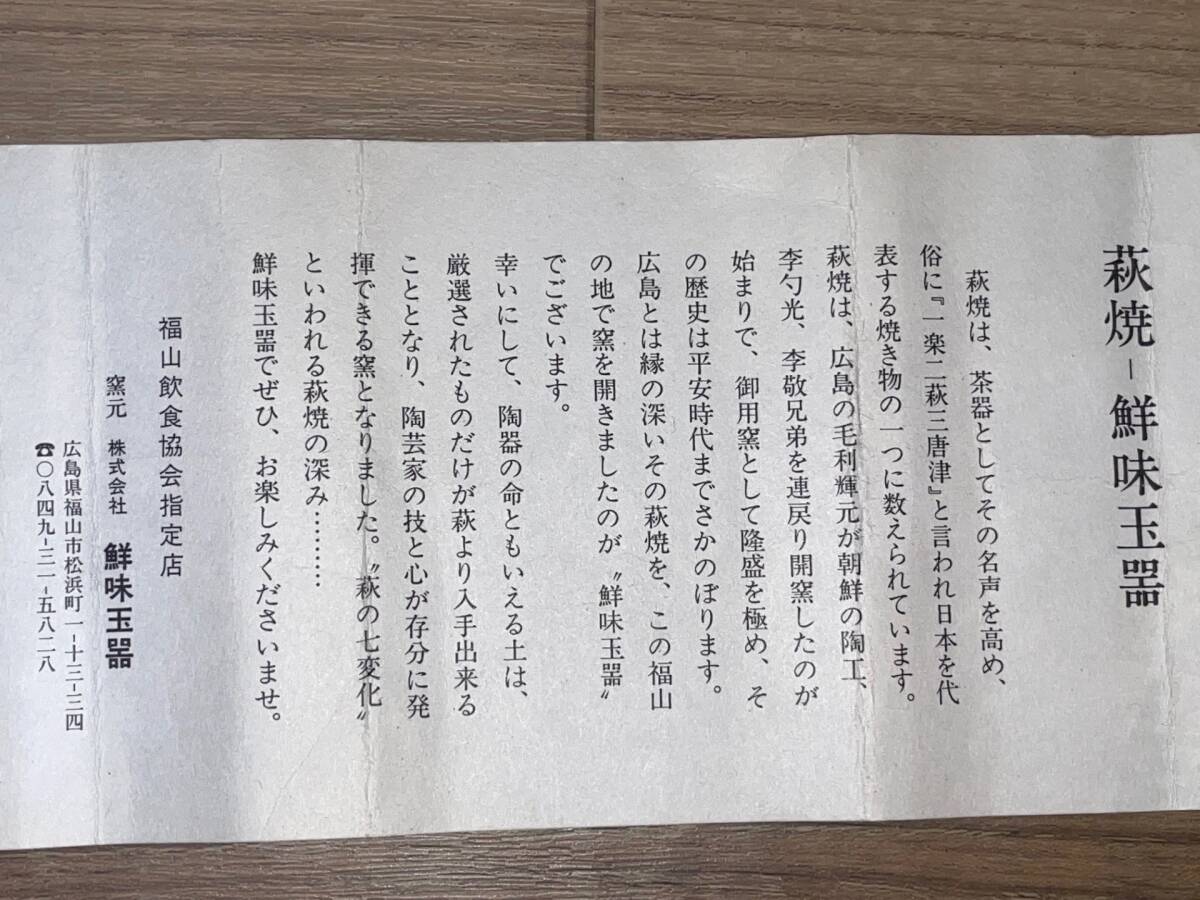 萩焼－鮮味玉器
萩焼は、茶器としてその名声を高め、
俗に『一楽二萩三唐津』と言われ日本を代
表する焼き物の一つに数えられています。
萩焼は、広島の毛利輝元が朝鮮の陶工、
李勺光、李敬兄弟を連戻り開窯したのが
始まりで、御用窯として隆盛を極め、そ
の歴史は平安時代までさかのぼります。
広島とは縁の深いその萩焼を、この福山
の地で窯を開きましたのが〝鮮味玉器〟
でございます。
幸いにして、陶器の命ともいえる土は、
厳選されたものだけが萩より入手出来る
こととなり、陶芸家の技と心が存分に発
揮できる窯となりました。〝萩の七変化〟
といわれる萩焼の深み………
鮮味玉器でぜひ、お楽しみくださいませ。
福山飲食協会指定店
窯元 株式会社 鮮味玉器
広島県福山市松浜町一－十三－三四
☎〇八四九－三一－五八二八